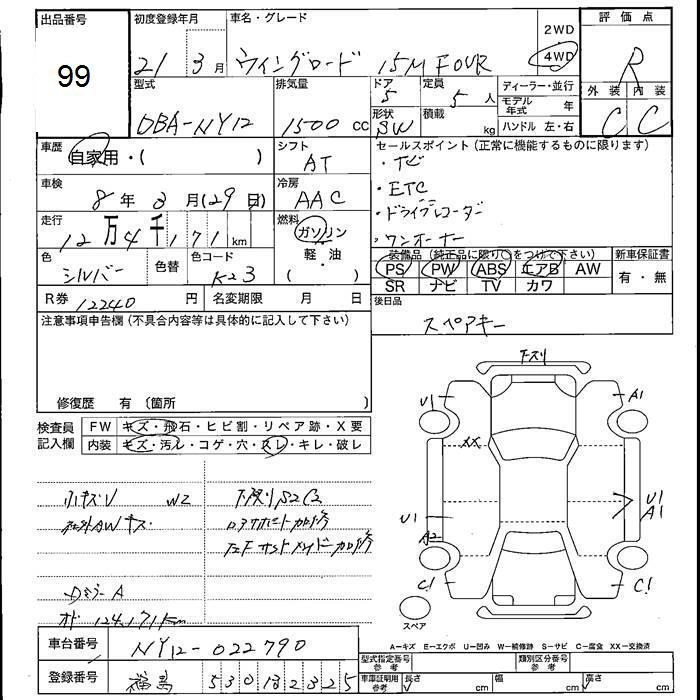 出品番号 初度登録年月 車名・グレード 評価点
99 21年 3月 ウィングロード 15M FOUR 2WD 4WD R
型式 排気量 ドア 定員 ディーラー・並行 外装 内装
DBA-NY12 1500 cc 5 5人 モデル年式 年 C C
形状 SW 積載 kg ハンドル 左・右
車歴 自家用・( ) シフト AT セールスポイント(正常に機能するものに限ります)
・ナビ
車検 8年 3月(29日) 冷房 AAC ・ETC
・ドライブレコーダー
走行 12万4千171km 燃料 ガソリン ・ワンオーナー
軽・油
( )
色 シルバー 色替 色コード K23
装備品(純正品に限り○をつけて下さい) 新車保証書
PS PW ABS エアB AW 有・無
SR ナビ TV カワ
R券 12240円 名変期限 月 日 後日品
スペアキー
注意事項申告欄(不具合内容等は具体的に記入して下さい)
修復歴 有 〔箇所 〕
検査員記入欄 FW キズ・飛石・ヒビ割・リペア跡・X要
内装 キズ・汚レ・コゲ・穴・スレ・キレ・破レ
小キズU W2 下廻りS2C2
社外AWキズ
Dミラー A
オド 124,171Km
下スリ
U1 A1
XX
U1 U1
A1
A2
C1 C1
スペア
A-キズ E-エクボ U-凹み W-補修跡 S-サビ C-腐食 XX-交換済
車台番号 NY12-022790
型式指定番号 参考 類別区分番号 参考
登録番号 福島 530 ひ 2325
車庫証明用 参考 長さ cm 幅 cm 高さ cm